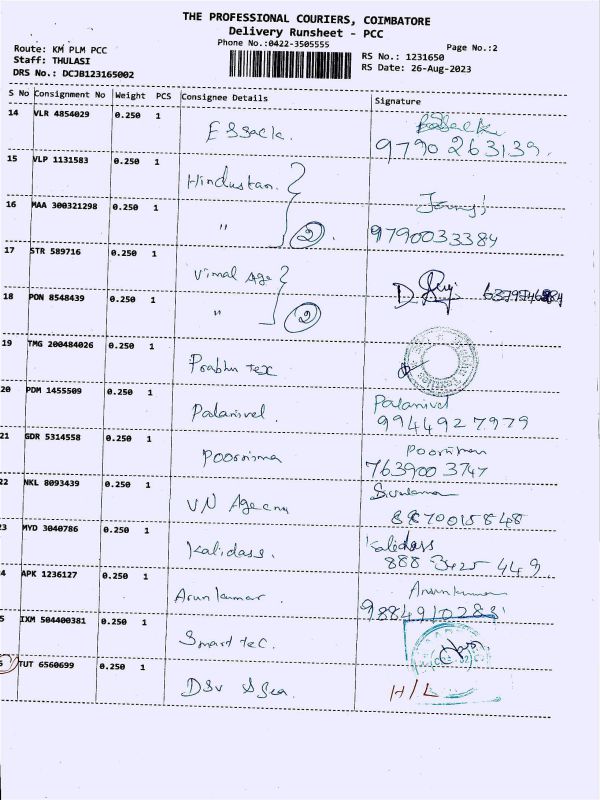 THE PROFESSIONAL COURIERS, COIMBATORE
Delivery Runsheet - PCC
Phone No.:0422-3505555
Page No.:2
Route: KM PLM PCC
Staff: THULASI
DRS No.: DCJB123165002
RS No.: 1231650
RS Date: 26-Aug-2023
S No Consignment No Weight PCS Consignee Details Signature
14 VLR 4854029 0.250 1
ESSack.
9790263139.
15 VLP 1131583 0.250 1
Hindustan.
16 MAA 300321298 0.250 1
" 2.
9790033384
17 STR 589716 0.250 1
Vimal Age
18 PON 8548439 0.250 1
" 2
19 TMG 200484026 0.250 1
Prabhu tex
20 PDM 1455509 0.250 1
Palanivel.
Palanivel
9944927979
21 GDR 5314558 0.250 1
Poornima
Poornima
7639003747
22 NKL 8093439 0.250 1
VN
8870015848
3 MYD 3040786 0.250 1
Kalidass.
Kalidass
888 3425 449
4 APK 1236127 0.250 1
Arunkumar.
Arunkumar
9884910283
5 IXM 504400381 0.250 1
Smart tec.
6 TUT 6560699 0.250 1
DSV
H/L